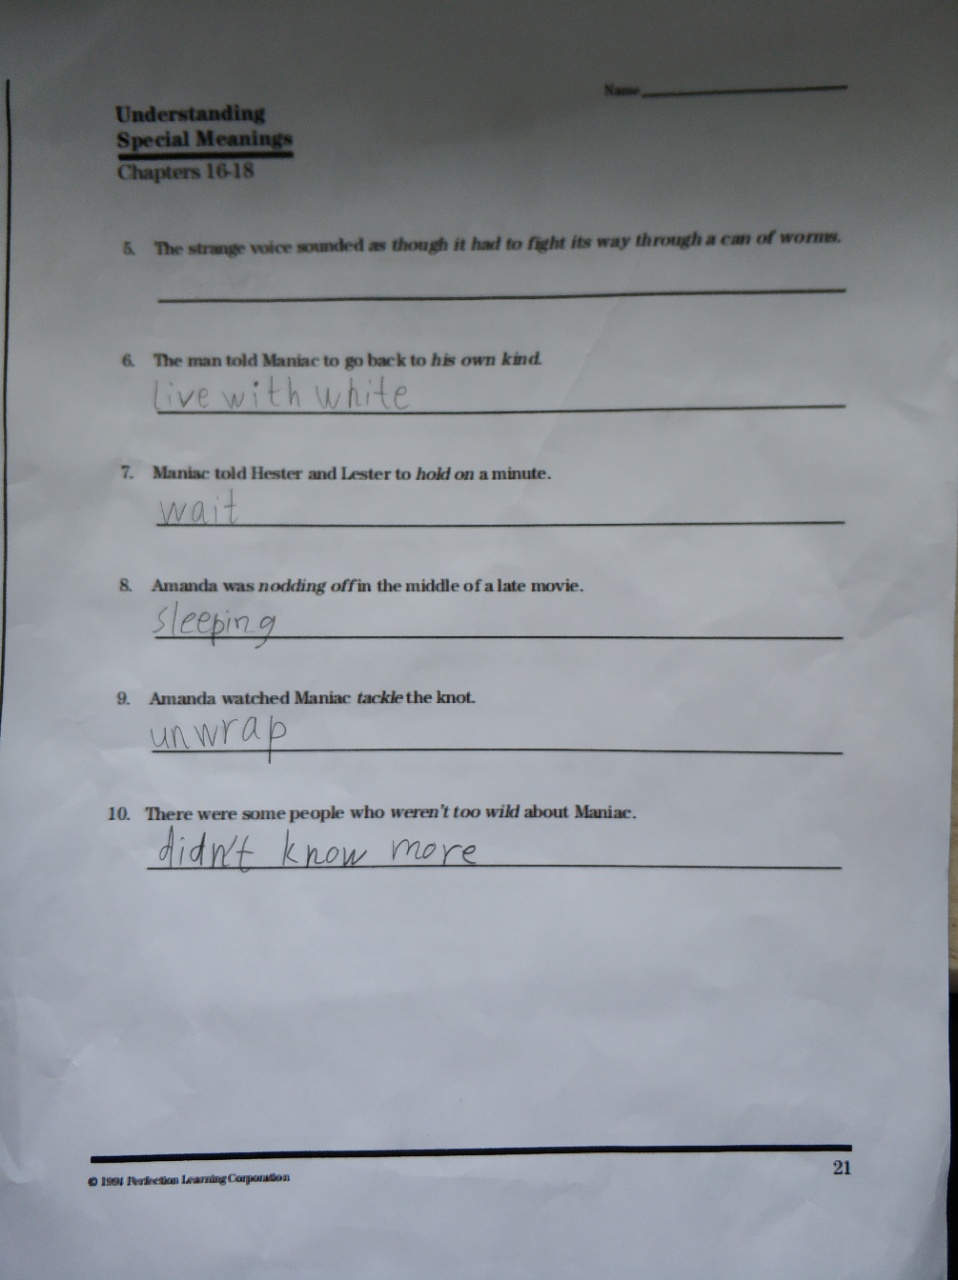 Name
Understanding
Special Meanings
Chapters 16-18
5. The strange voice sounded as though it had to fight its way through a can of worms.
6. The man told Maniac to go back to his own kind.
live with white
7. Maniac told Hester and Lester to hold on a minute.
wait
8. Amanda was nodding off in the middle of a late movie.
sleeping
9. Amanda watched Maniac tackle the knot.
unwrap
10. There were some people who weren't too wild about Maniac.
didn't know more
© 1994 Perfection Learning Corporation
21